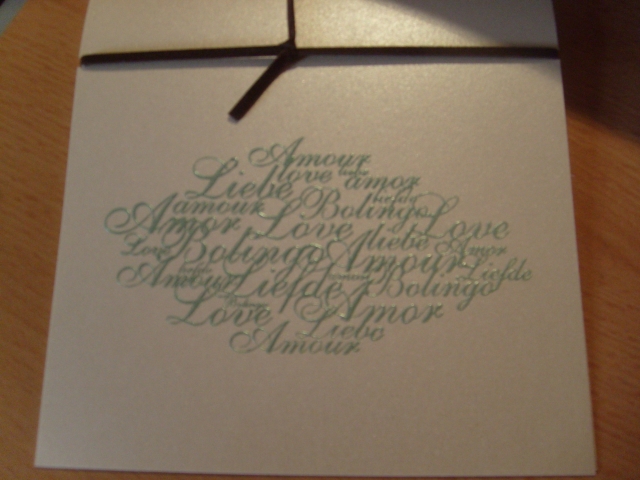 Amour
love amor
Liebe
amour Bolingo
Amor Love Love
liebe Amor
Love Bolingo Amour Liefde
Amour Liefde Bolingo
Love Amor
Liebe
Amour